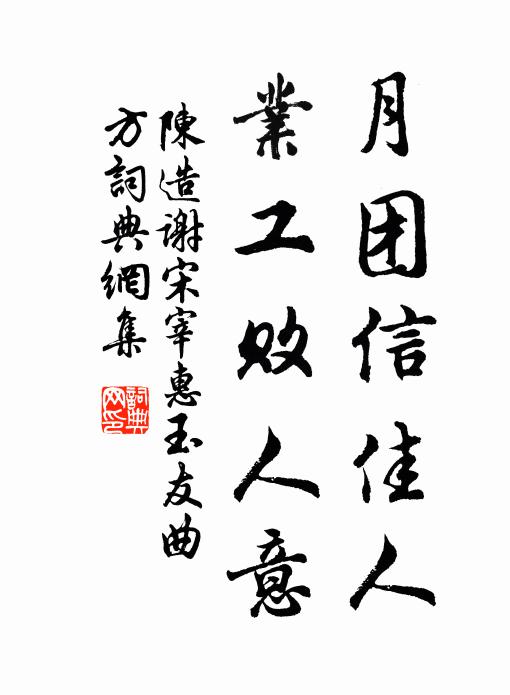 月团信佳人
業工败人意
陳造谢宋宰惠玉友曲
方詞典網集
詞典网印